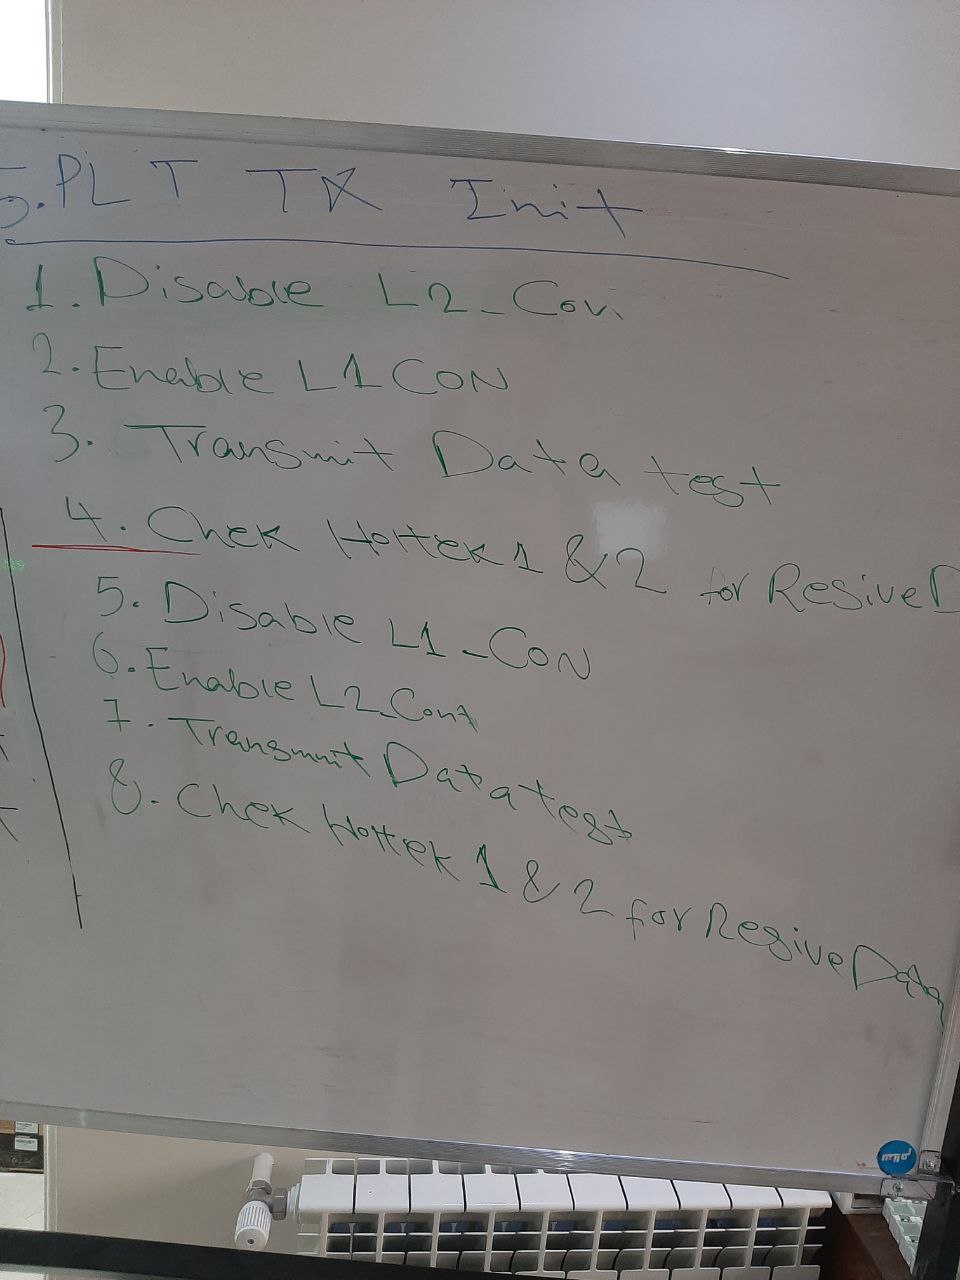 5. PLT TX Init
1. Disable L2_Con
2. Enable L1 CON
3. Transmit Data test
4. Chek Holtek 1 & 2 for Resive D
5. Disable L1_CON
6. Enable L2_Cont
7. Transmit Data test
8. Chek Holtek 1 & 2 for Resive Data